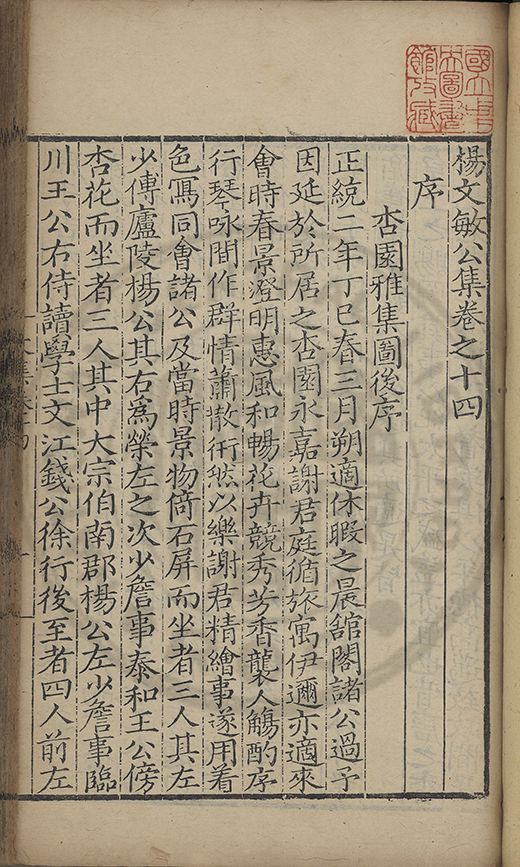 國立中央圖書館收藏
楊文敏公集卷之十四
序
杏園雅集圖後序
正統二年丁巳春三月朔適休暇之晨舘閣諸公過予
因延於所居之杏園永嘉謝君庭循旅寓伊邇亦適來
會時春景澄明惠風和暢花卉競秀芳香襲人觴酌序
行琴咏間作群情蕭散衎然以樂謝君精繪事遂用着
色寫同會諸公及當時景物倚石屏而坐者三人其左
少傅廬陵楊公其右為榮左之次少詹事泰和王公傍
杏花而坐者三人其中大宗伯南郡楊公左少詹事臨
川王公右侍讀學士文江錢公徐行後至者四人前左